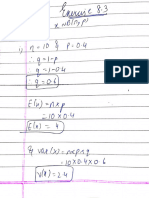 Exercise 8.3
X ~ b(n,p)
1) n = 10 & p = 0.4
∴ q = 1-p
q = 1-0.4
q = 0.6
E(x) = n×p
= 10×0.4
E(x) = 4
& var(x) = n×p×q
= 10×0.4×0.6
V(x) = 2.4